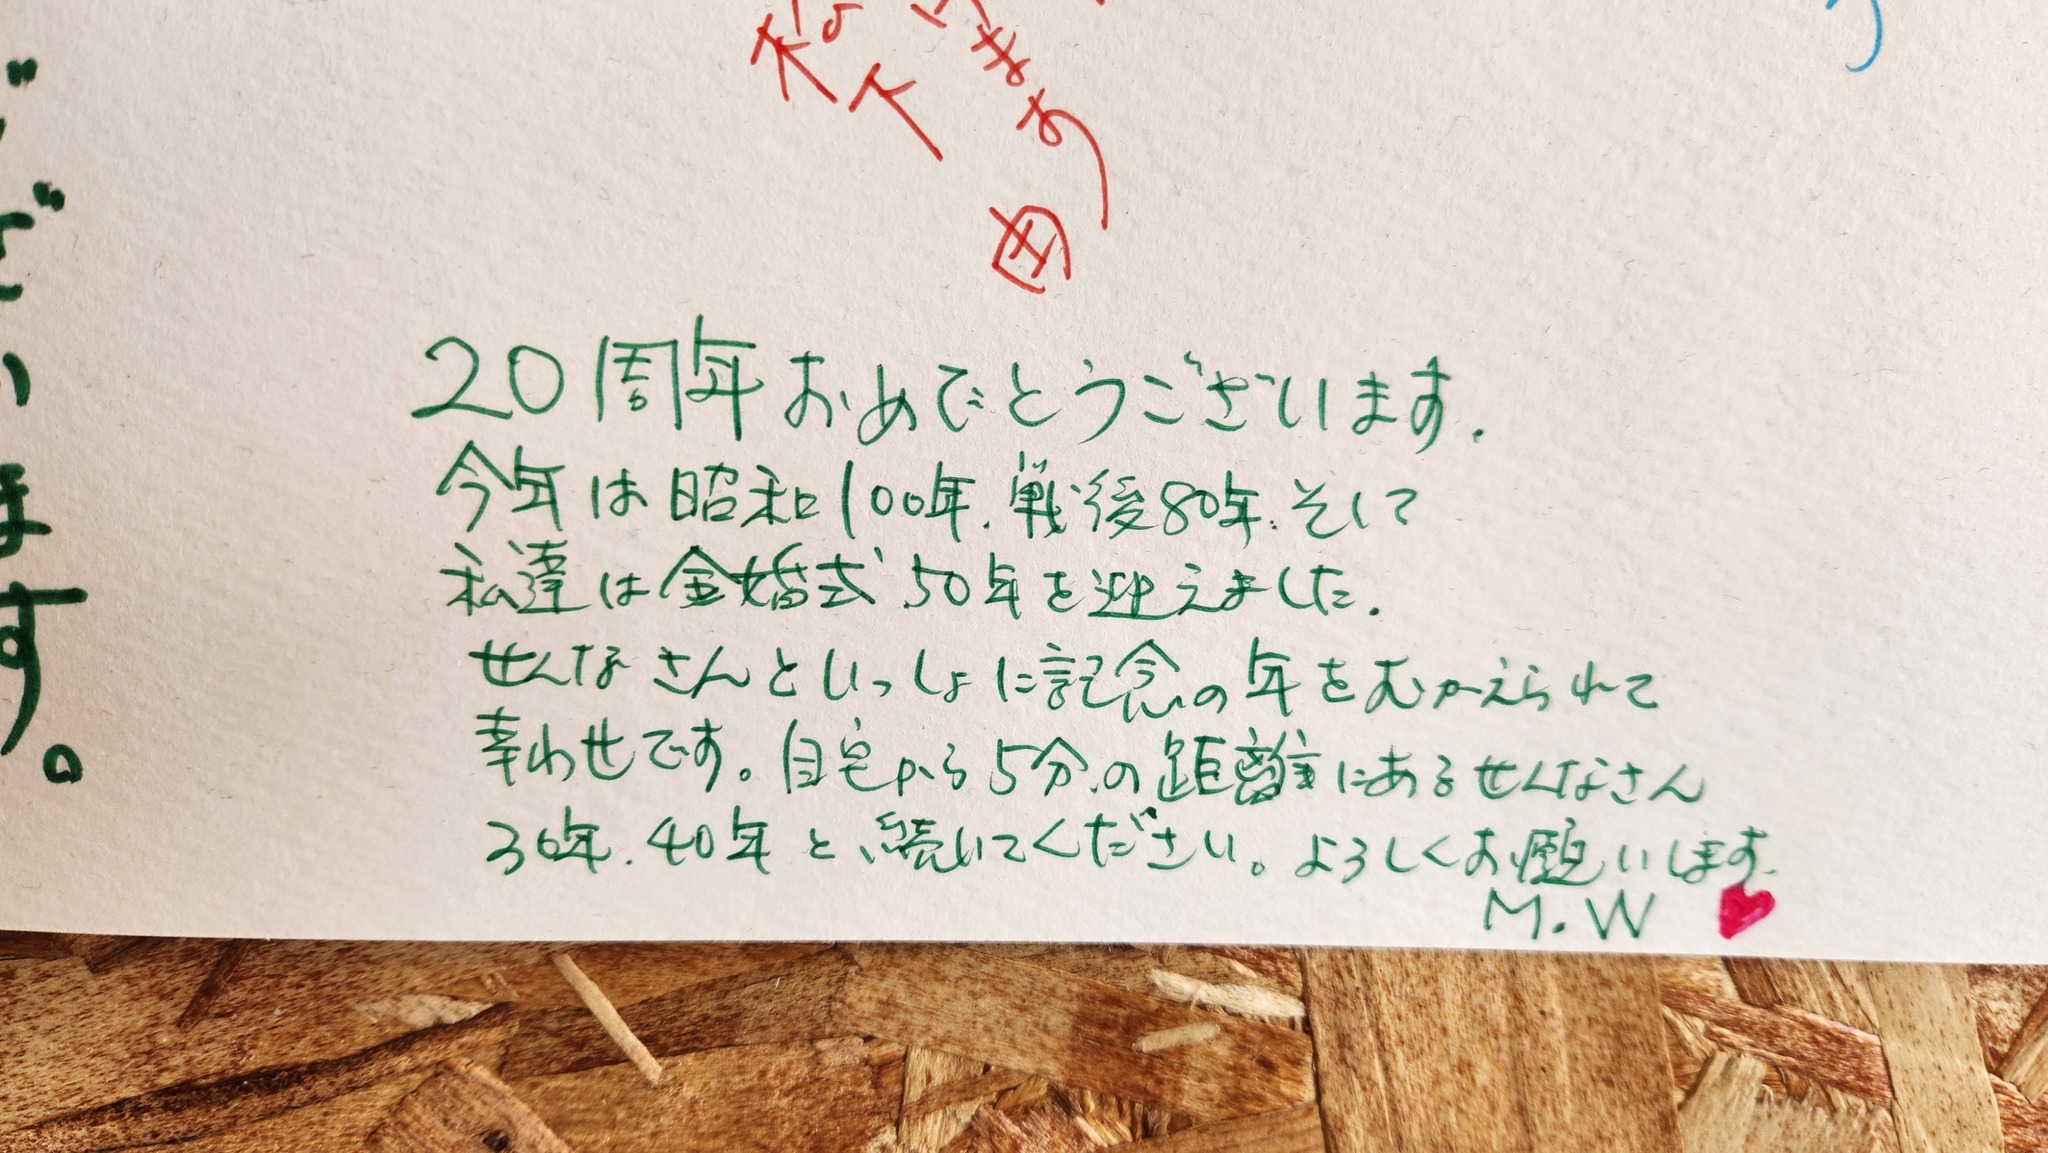 います
20周年おめでとうございます.
今年は昭和100年.戦後80年.そして
私達は金婚式50年を迎えました.
せんなさんといっしょに記念の年をむかえられて
幸わせです。自宅から5分の距離にあるせんなさん
30年.40年と、続いてください。よろしくお願いします.
M.W